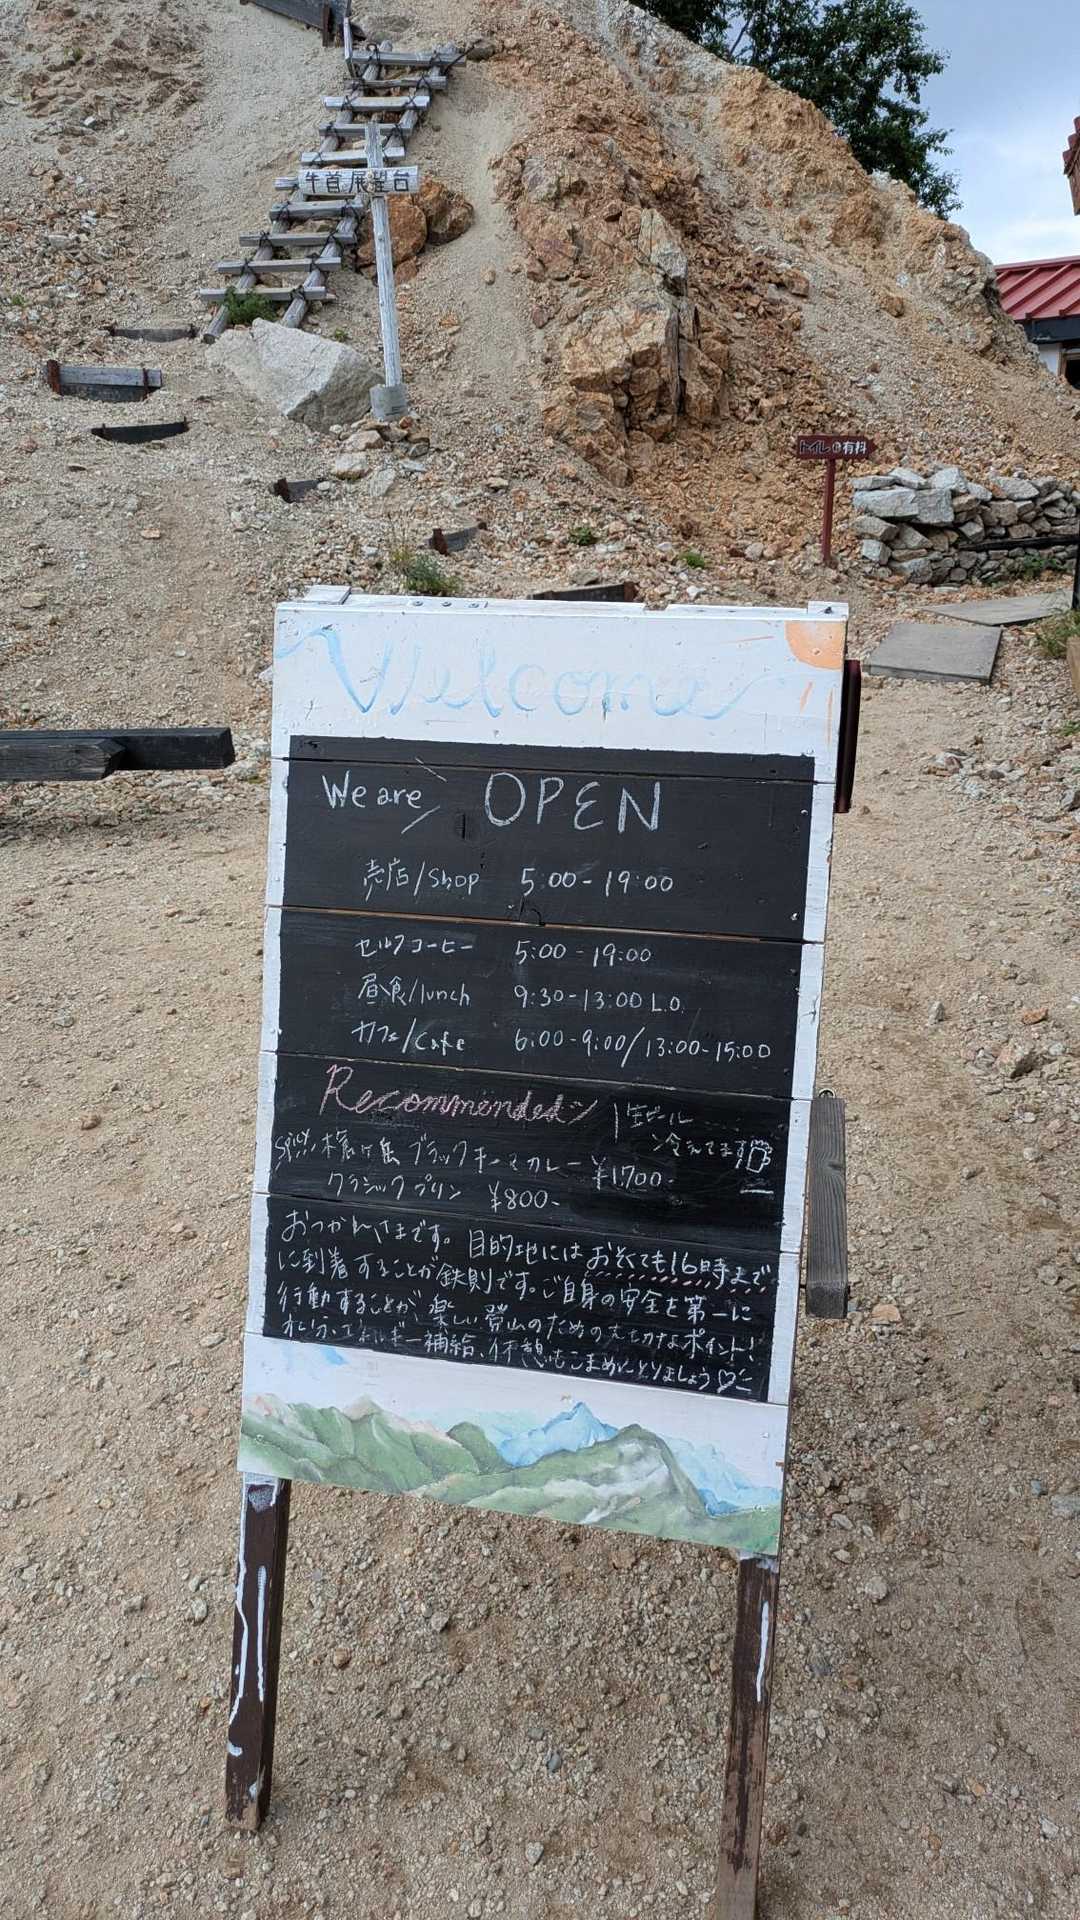 牛首展望台
トイレ 有料
Welcome
We are OPEN
売店/shop 5:00-19:00
セルフコーヒー 5:00-19:00
昼食/lunch 9:30-13:00 L.O.
カフェ/cafe 6:00-9:00/13:00-15:00
Recommended
生ビール
冷えてます
spicy 槍ヶ岳 ブラックキーマカレー ¥1,700-
クラシックプリン ¥800-
おつかれさまです。目的地にはおそくても16時まで
に到着することが鉄則です。ご自身の安全を第一に
行動することが、楽しい登山のための大切なポイント!
水分、エネルギー補給、休憩もこまめにとりましょう♡